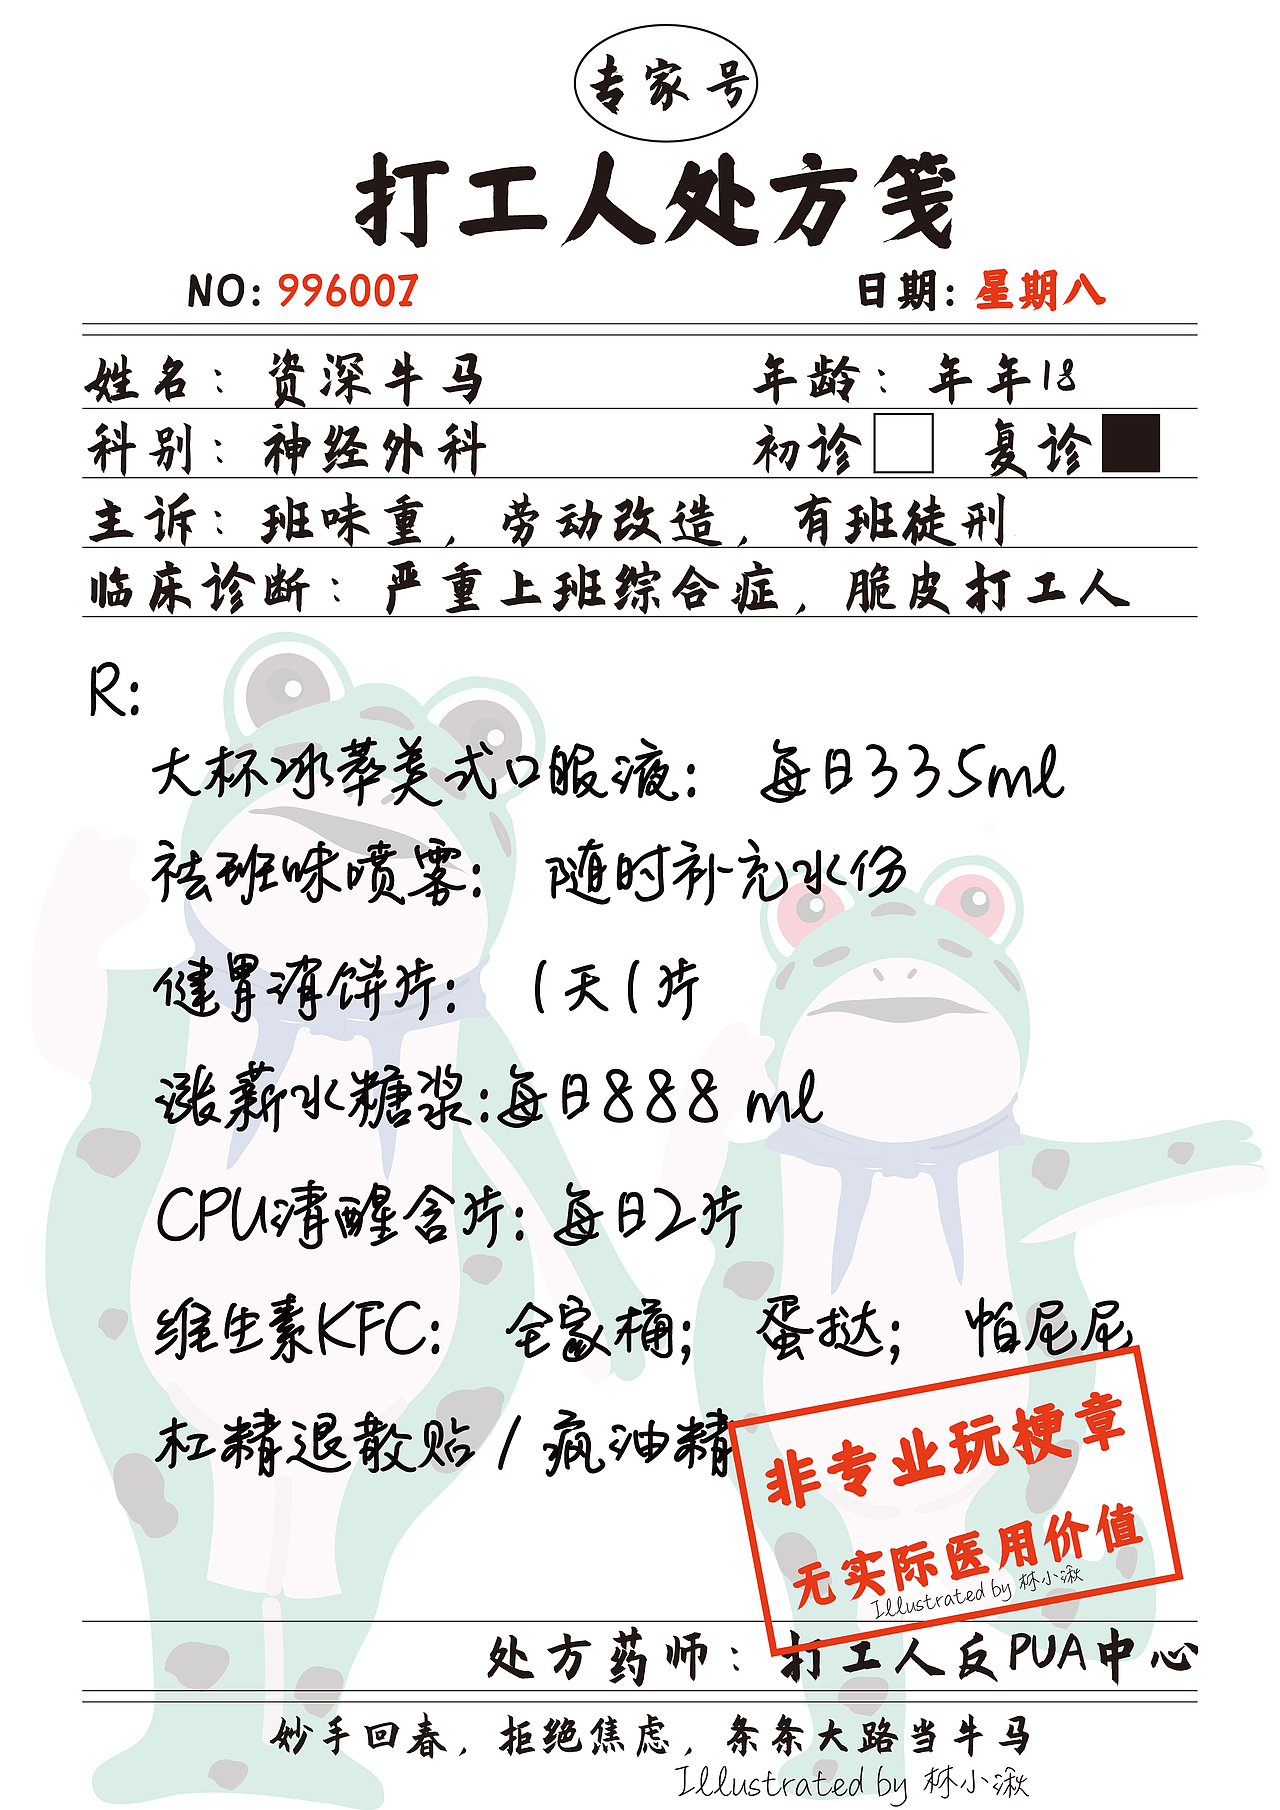 专家号
打工人处方笺
NO: 996007 日期: 星期八
姓名: 资深牛马 年龄: 年年18
科别: 神经外科 初诊 复诊
主诉: 班味重, 劳动改造, 有班徒刑
临床诊断: 严重上班综合症, 脆皮打工人
R:
大杯冰萃美式口服液: 每日335ml
祛班味喷雾: 随时补充水份
健胃消饼片: 1天1片
涨薪水糖浆:每日888 ml
CPU清醒含片: 每日2片
维生素KFC: 全家桶; 蛋挞; 帕尼尼
杠精退散贴 / 疯油精
非专业玩梗章
无实际医用价值
Illustrated by 林小湫
处方药师: 打工人反PUA中心
妙手回春, 拒绝焦虑, 条条大路当牛马
Illustrated by 林小湫